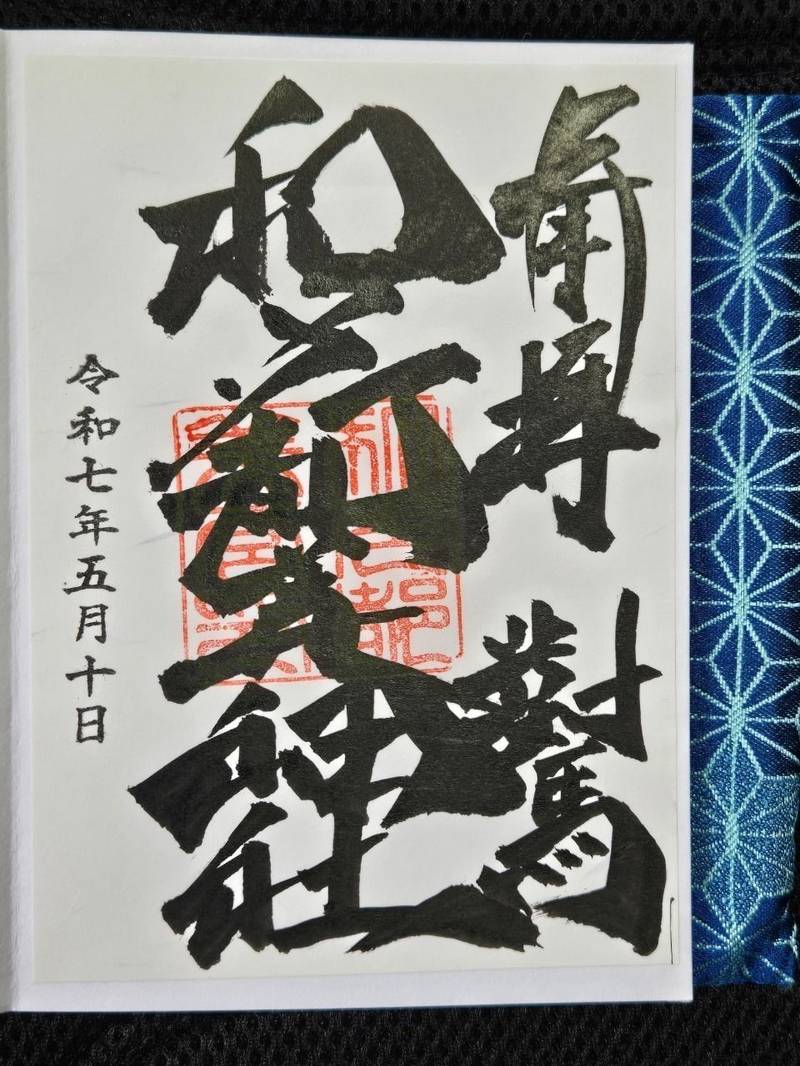 奉拝 對馬
和多都美神社
令和七年五月十日